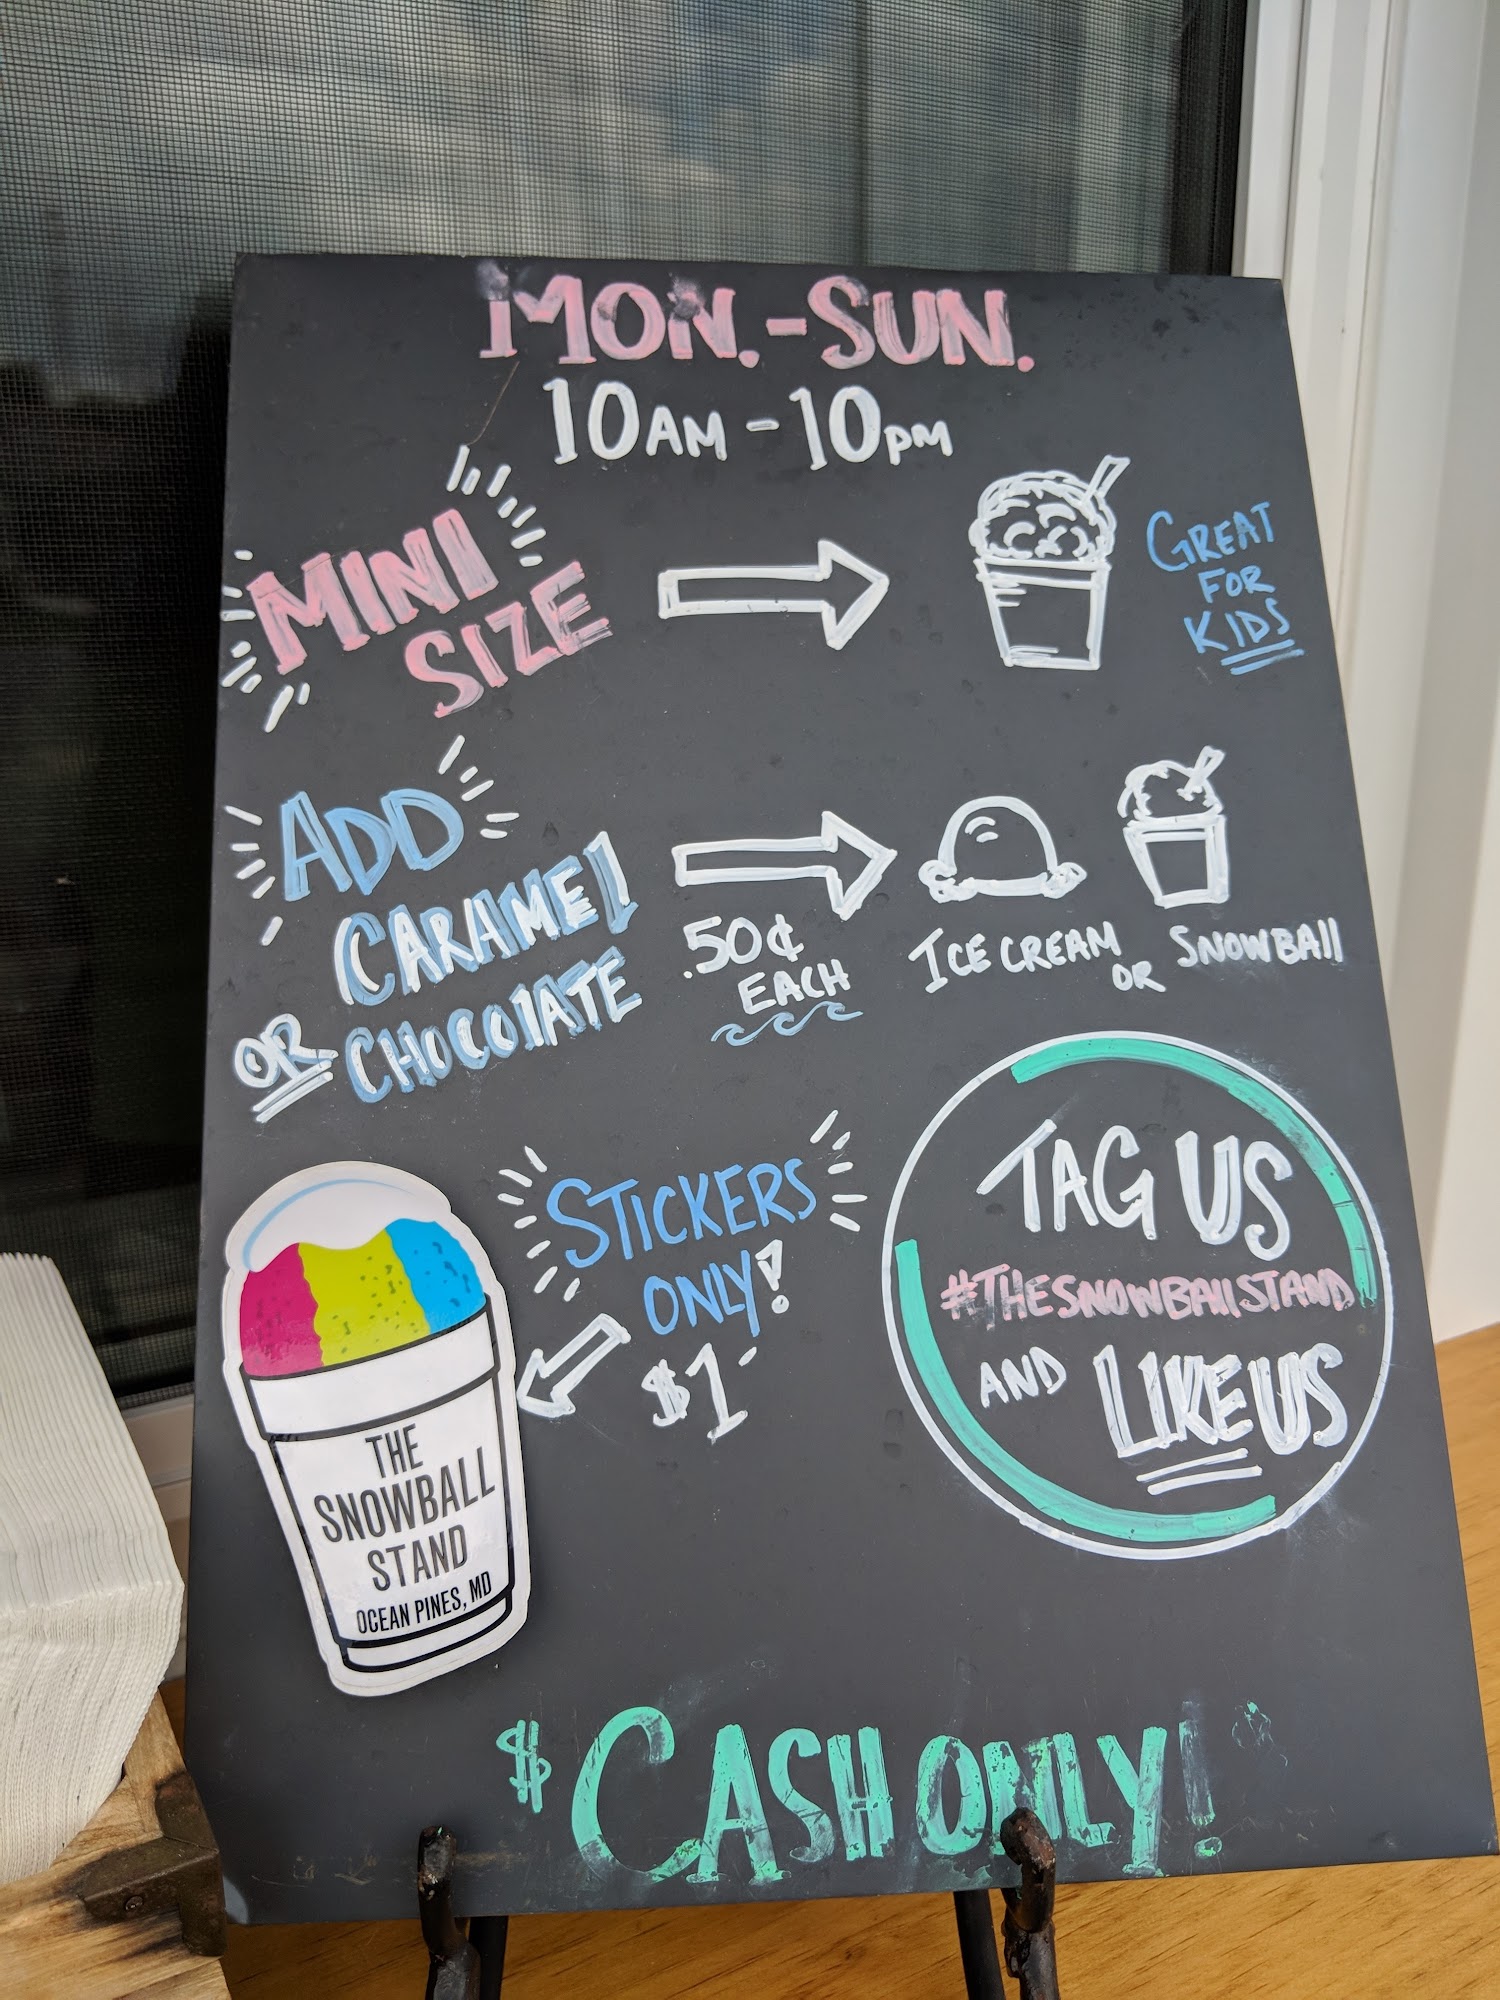 MON.-SUN.
10AM - 10PM
MINI
SIZE
GREAT
FOR
KIDS
ADD
CARAMEL
OR CHOCOLATE
.50¢
EACH
ICE CREAM OR SNOWBALL
STICKERS
ONLY!
$1
TAG US
#THESNOWBALLSTAND
AND LIKE US
THE
SNOWBALL
STAND
OCEAN PINES, MD
$ CASH ONLY!